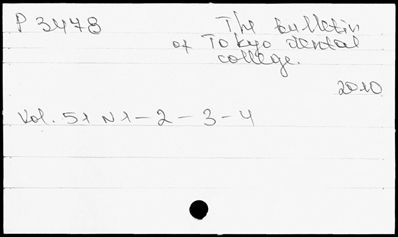 P 3478
The bulletin
of Tokyo dental
college.
2010
Vol. 51 N 1-2-3-4